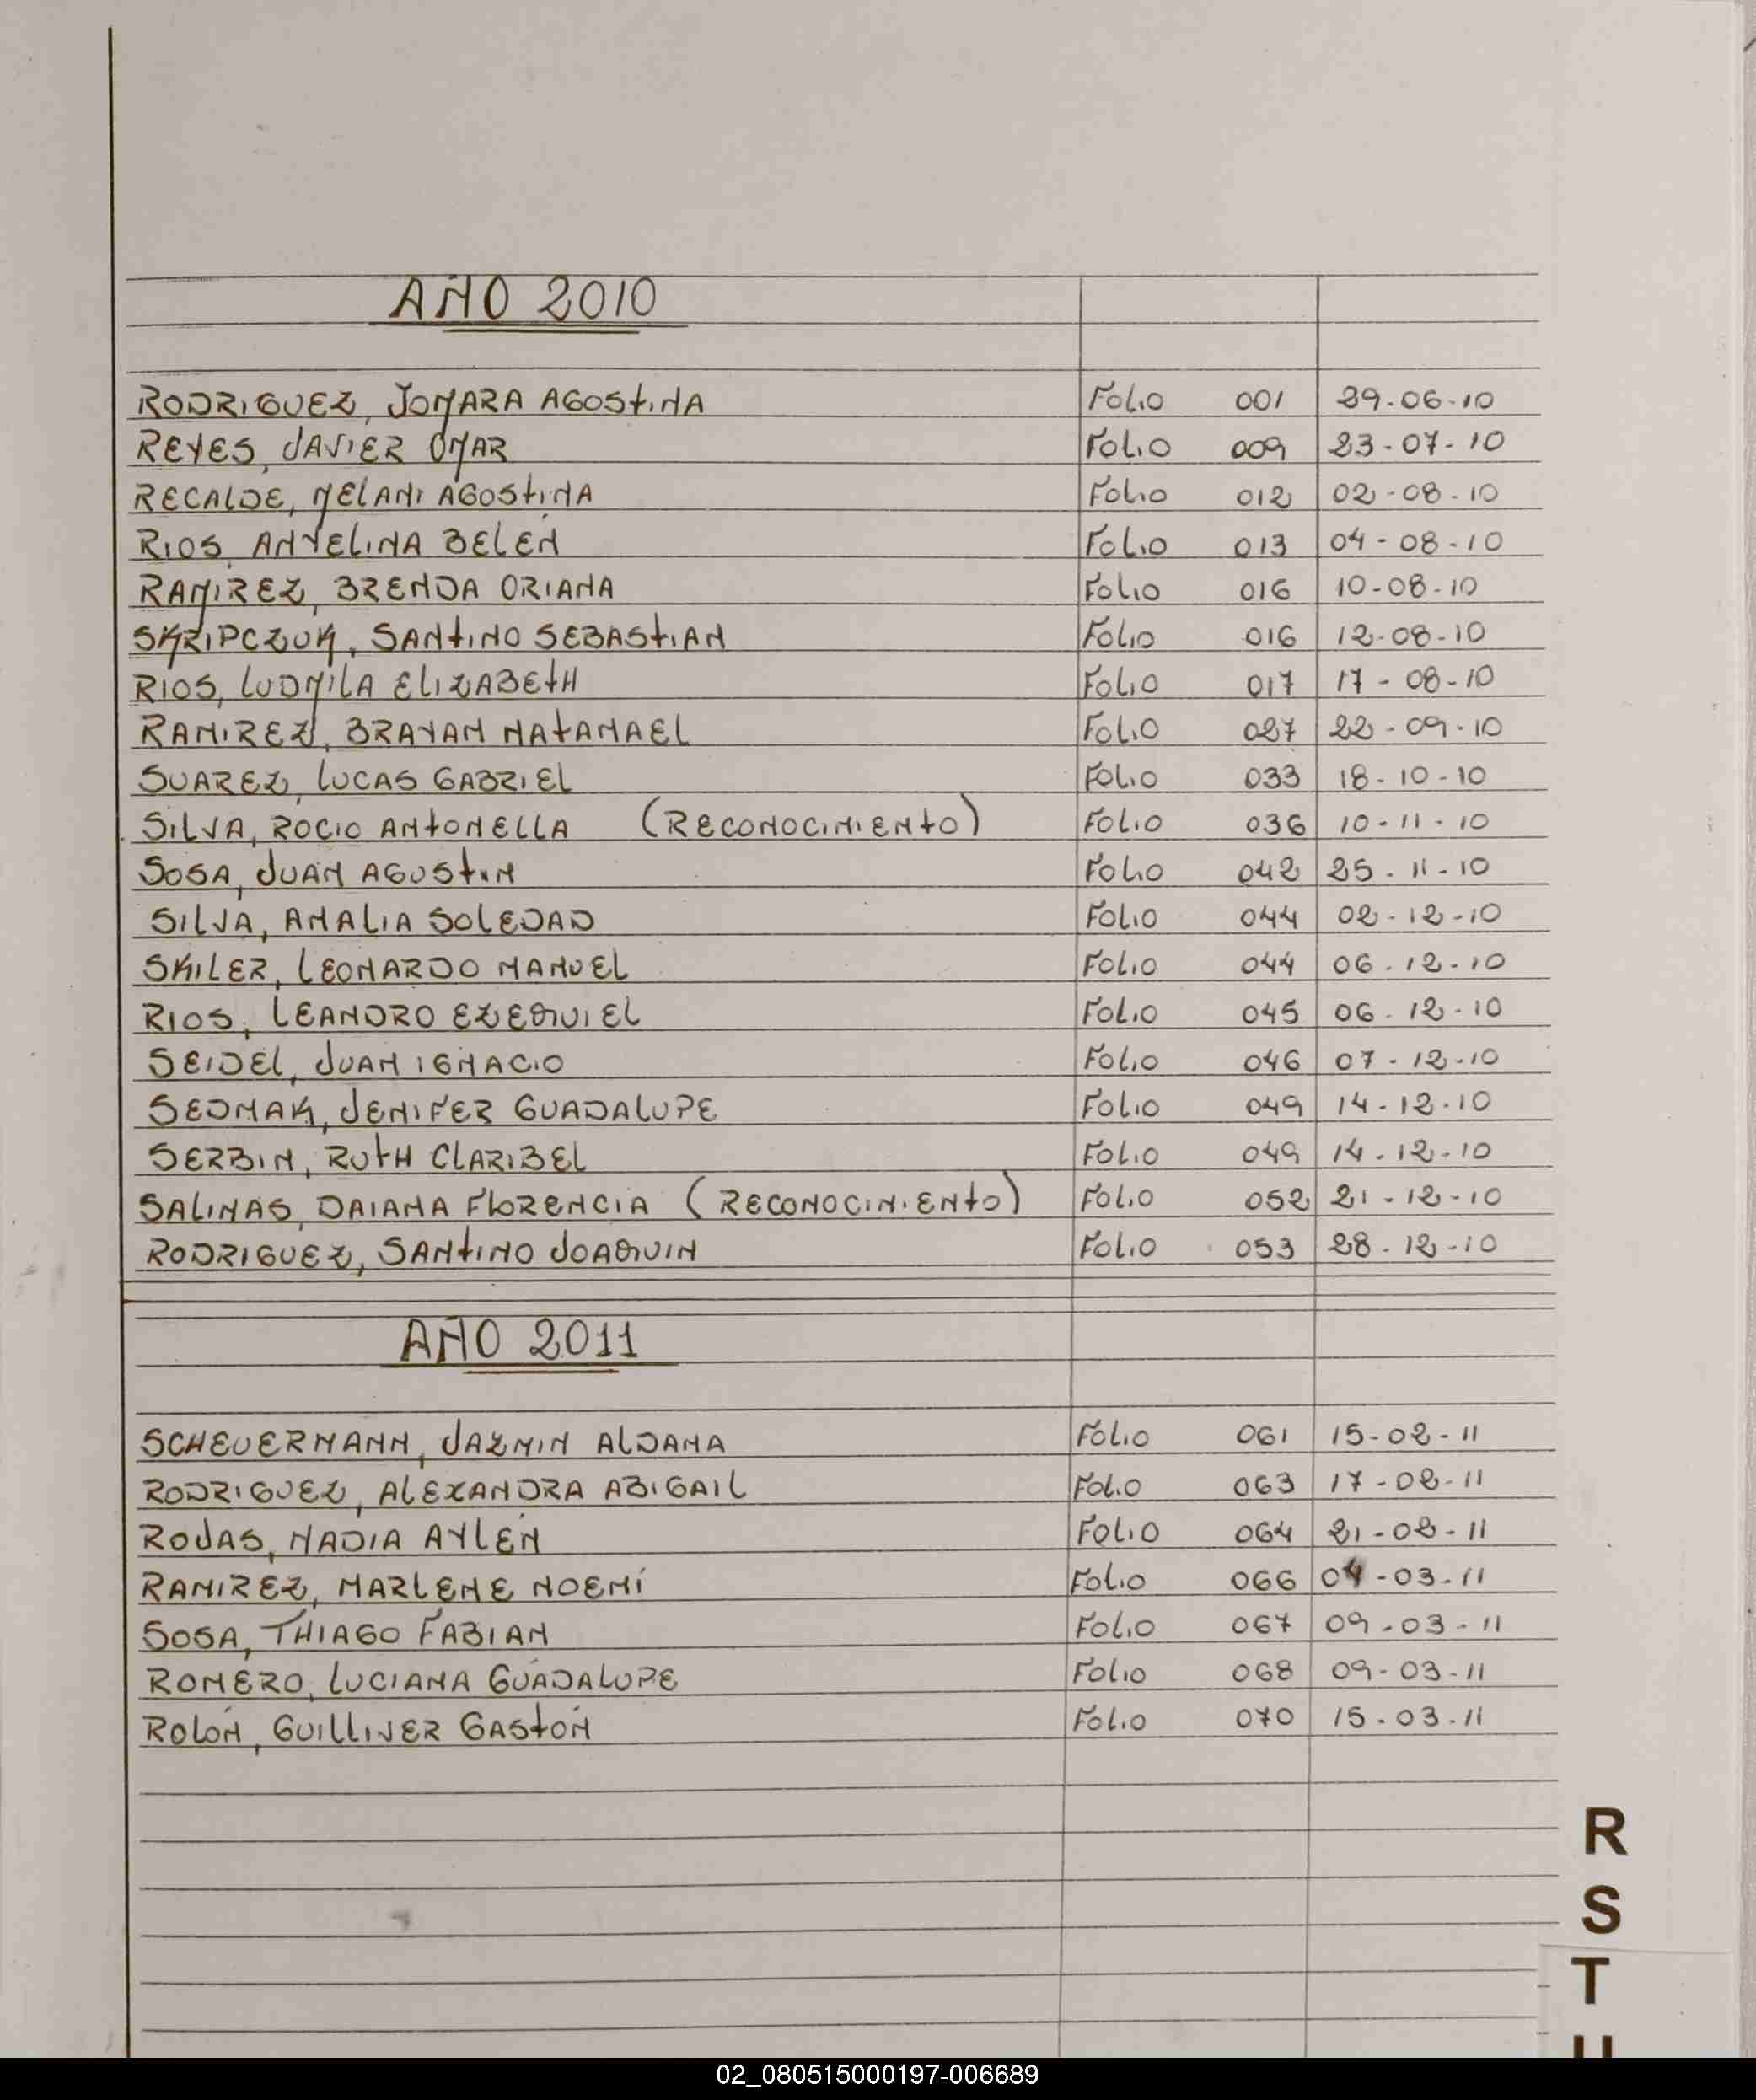 AÑO 2010
RODRIGUEZ, JOMARA AGOSTINA FOLIO 001 29-06-10
REYES, JAVIER OMAR FOLIO 009 23-07-10
RECALDE, MELANI AGOSTINA FOLIO 012 02-08-10
RIOS, ANYELINA BELEN FOLIO 013 04-08-10
RAMIREZ, BRENDA ORIANA FOLIO 016 10-08-10
SKRIPCZUK, SANTINO SEBASTIAN FOLIO 016 12-08-10
RIOS, LUDMILA ELIZABETH FOLIO 017 17-08-10
RAMIREZ, BRAYAN NATANAEL FOLIO 027 22-09-10
SUAREZ, LUCAS GABRIEL FOLIO 033 18-10-10
SILVA, ROCIO ANTONELLA (RECONOCIMIENTO) FOLIO 036 10-11-10
SOSA, JUAN AGUSTIN FOLIO 042 25-11-10
SILVA, AMALIA SOLEDAD FOLIO 044 02-12-10
SKILER, LEONARDO MANUEL FOLIO 044 06-12-10
RIOS, LEANDRO EZEQUIEL FOLIO 045 06-12-10
SEIDEL, JUAN IGNACIO FOLIO 046 07-12-10
SEDMAK, JENIFER GUADALUPE FOLIO 049 14-12-10
SERBIN, RUTH CLARIBEL FOLIO 049 14-12-10
SALINAS, DAIANA FLORENCIA (RECONOCIMIENTO) FOLIO 052 21-12-10
RODRIGUEZ, SANTINO JOAQUIN FOLIO 053 28-12-10
AÑO 2011
SCHEUERMANN, JAZMIN ALDANA FOLIO 061 15-02-11
RODRIGUEZ, ALEXANDRA ABIGAIL FOLIO 063 17-02-11
ROJAS, NADIA AYLÉN FOLIO 064 21-02-11
RAMIREZ, MARLENE NOEMÍ FOLIO 066 04-03-11
SOSA, THIAGO FABIAN FOLIO 067 09-03-11
ROMERO, LUCIANA GUADALUPE FOLIO 068 09-03-11
ROLÓN, GUILLIVER GASTÓN FOLIO 070 15-03-11
R
S
T
02_080515000197-006689